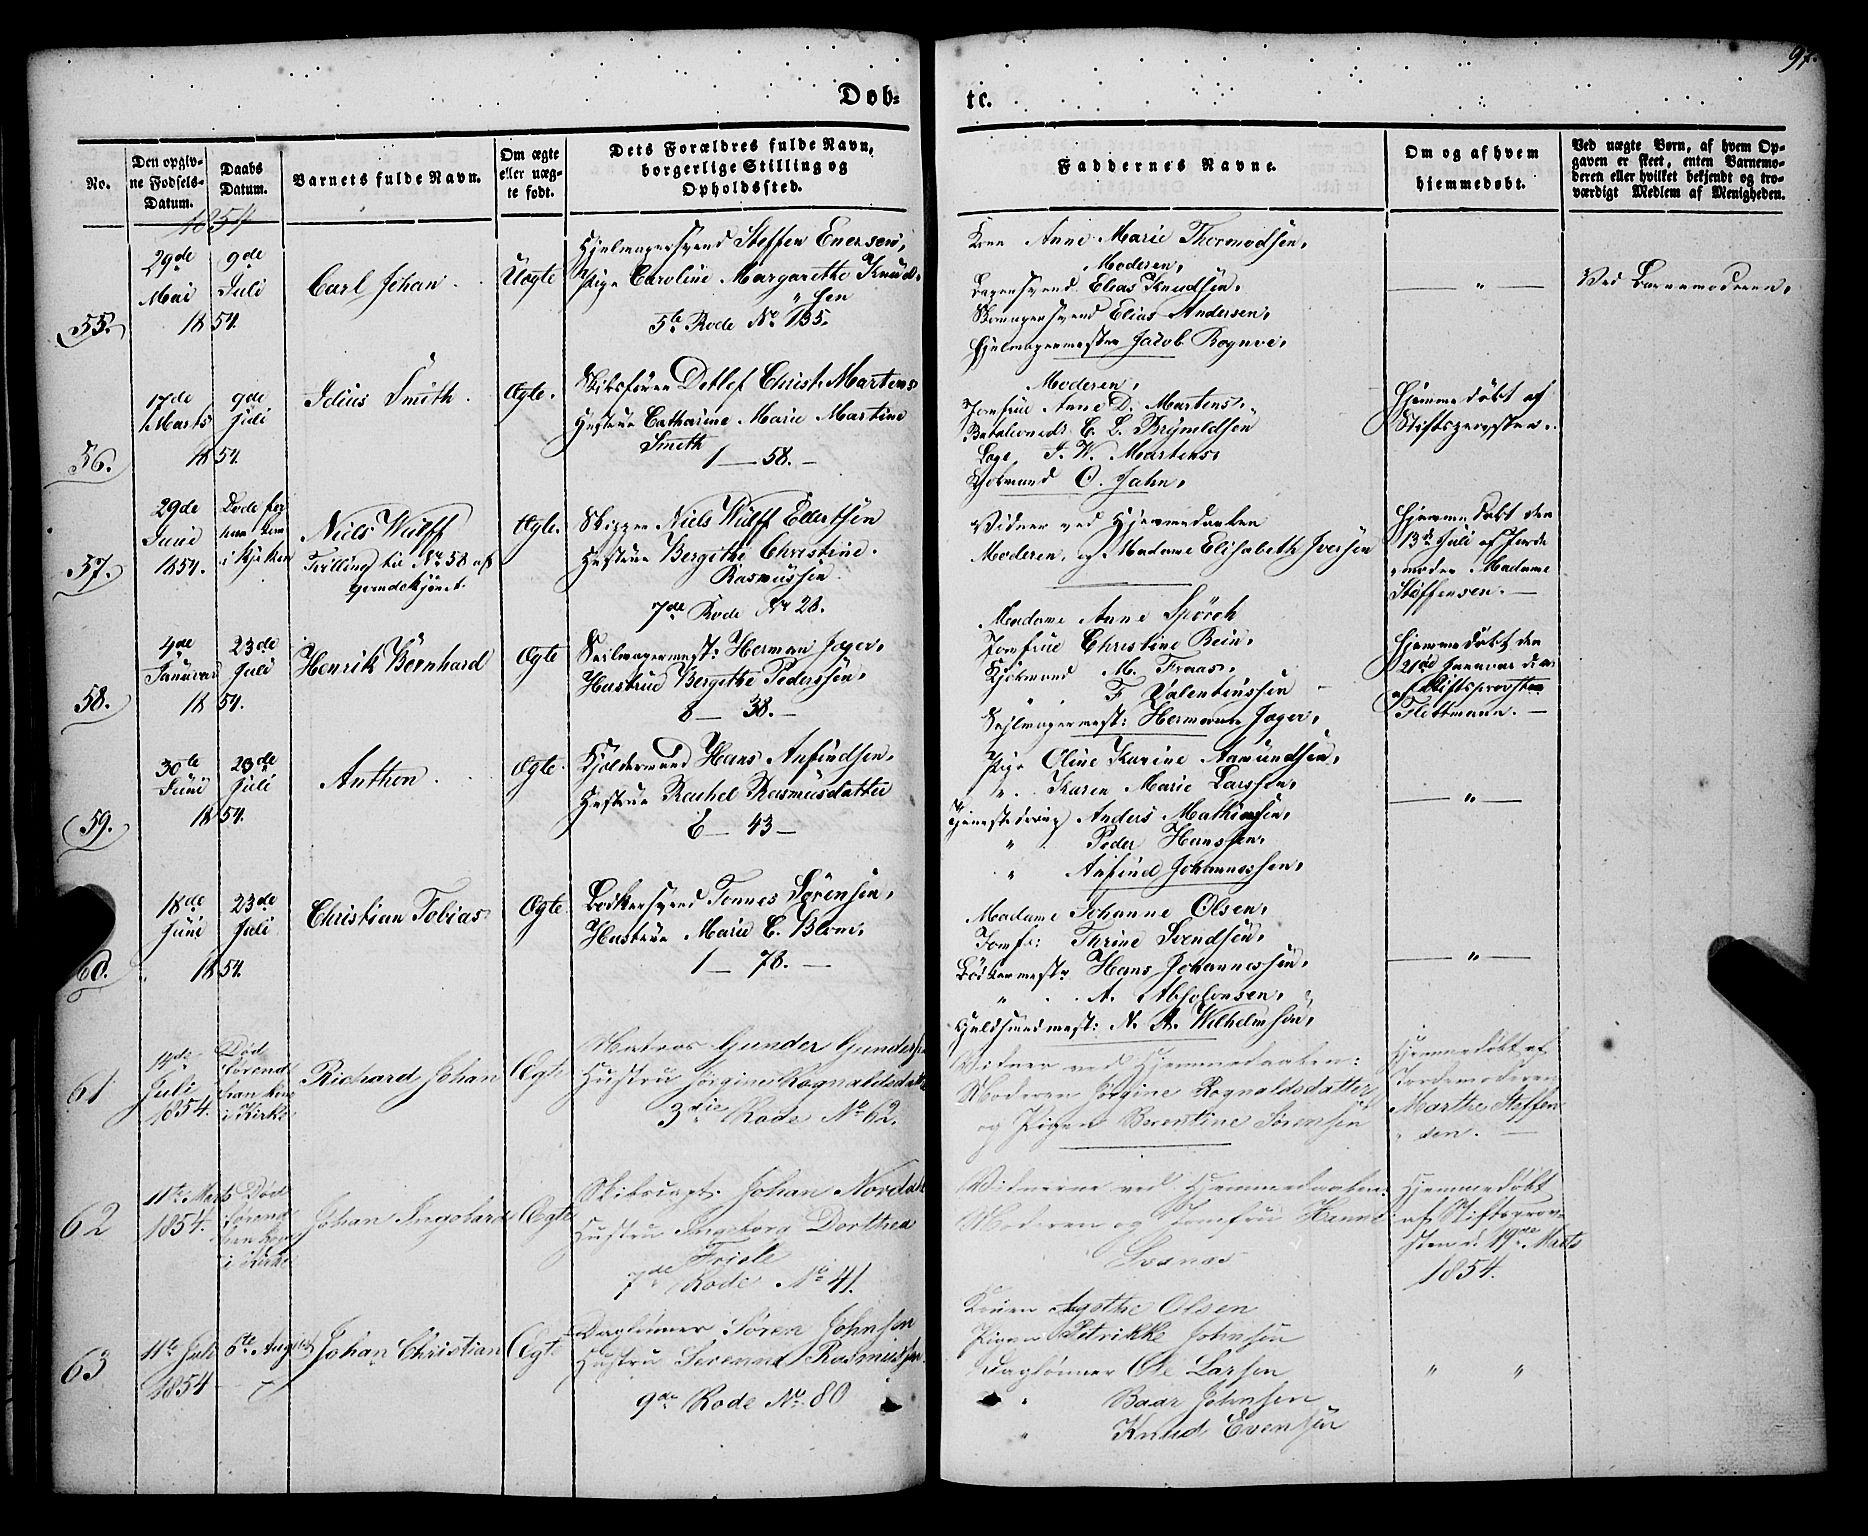 97.
Døb-
te.
No.
Den opgiv-
ne Fødsels-
Datum.
Daabs
Datum.
Barnets fulde Navn.
Om ægte
eller uæg-
te født.
Dets Forældres fulde Navn,
borgerlige Stilling og
Opholdssted.
Faddernes Navne.
Om og af hvem
hjemmedøbt.
Ved uægte Børn, af hvem Op-
gaven er skeet, enten Barnemo-
deren eller hvilket bekjendt og tro-
værdigt Medlem af Menigheden.
1854
55.
29de
Mai
9de
Juli
1854.
Carl Johan.
Uægte
Hjulmagersvend Steffen Enersen,
Pige Caroline Margarethe Knud-
sen
5te Rode No 135.
Kone Anne Marie Thormodsen,
Moderen,
Bagersvend Elias Knudsen,
Skomagersvend Elias Andersen,
Hjulmagermester Jacob Rognvi,
— " —
Ved Barnemoderen,
56.
17de
Marts
9de
Juli
1854.
Smith.
Ægte.
Skibsfører Detlef Christ. Martens
Hustrue Catharine Marie Martine
Smith
1 — 58. —
Moderen,
Jomfrue Anne D. Martens,
C. L. Brynildsen
J. W. Martens,
Kjøbmand O. Jahn,
Hjemmedøbt af
Stiftsprovsten.
57.
29de
Juni
1854.
Døde før
han kom
i Kirken
Niels Wulff
Tvilling til No 58 af
Qvindekjønet.
Ægte.
Skipper Niels Wulff Ellertsen
Hustrue Bergithe Christine
Rasmussen
7de Rode No 28.
Vidner ved Hjemmedaaben
Moderen, og Madame Elisabeth Iversen
Hjemmedøbt den
13de Juli af Jorde-
moder Madame
Støffensen. —
58.
4de
Januar
23de
Juli
1854.
Henrik Bernhard
Ægte
Seilmagermest: Herman Jager,
Hustrue Bergithe Pedersen,
8 — 38. —
Madame Anne Spörck
Jomfrue Christine Bein,
Kjøbmand M. Fraas,
" F Valentinssen
Seilmagermest: Hermann Jager,
Hjemmedøbt den
21de Januar d. a.
af Stiftsprovsten
Flottmann. —
59.
30te
Juni
23de
Juli
1854.
Anthon.
Ægte.
Kjeldermand Hans Anfindsen,
Hustrue Rachel Rasmusdatter
6 — 43 —
Pige Oline Karine Aamundsen,
". Karen Marie Larssen,
Tjenestedreng Anders Mathiesen,
" Peder Hanssen,
" Anfind Johannessen,
— " —
60.
18de
Juni
23de
Juli
1854.
Christian Tobias
Ægte
Bødkersvend Tonnes Sørensen,
Hustrue Marie C. Blom,
1 — 78. —
Madame Johanne Olsen,
Jomf: Thrine Svendsen,
Bødkermestr Hans Johannessen,
" A. Absolonsen,
Guldsmedmest: N. A. Wilhelmsen,
— " —
61
14de
Juli
1854.
Død
førend
han kom
i Kirke
Richard Johan
Ægte
Matros Gunder Gundersen
Hustru Jørgine Rognaldsdatter
3die Rode No 62.
Vidner ved Hjemmedaaben:
Moderen Jørgine Rognaldsdatter
og Pigen Berentine Sørensen
Hjemmedøbt af
Jordemoderen
Marthe Steffen-
sen. —
62
11te Marts
1854.
Død
førend
han kom
i Kirke
Johan Ingolard
Ægte
Skibscapt. Johan Nordahl
Hustru Ingeborg Dorthea
Friele
7de Rode No 41.
Vidnerne ved Hjemmedaaben:
Moderen og Jomfru Hanne
Svanøs
Hjemmedøbt
af Stiftsprov-
sten d. 19de Marts
1854.
63
11te Juli
1854
6te August
Johan Christian
Ægte
Daglønner Søren Johnsen
Hustru Serenna Rasmussen
9de Rode No. 80
Konen Agethe Olsen
Pigen Petrikke Johnsen
Daglønner Ole Larsen
" Baar Johnsen
" Knud Evensen
" "